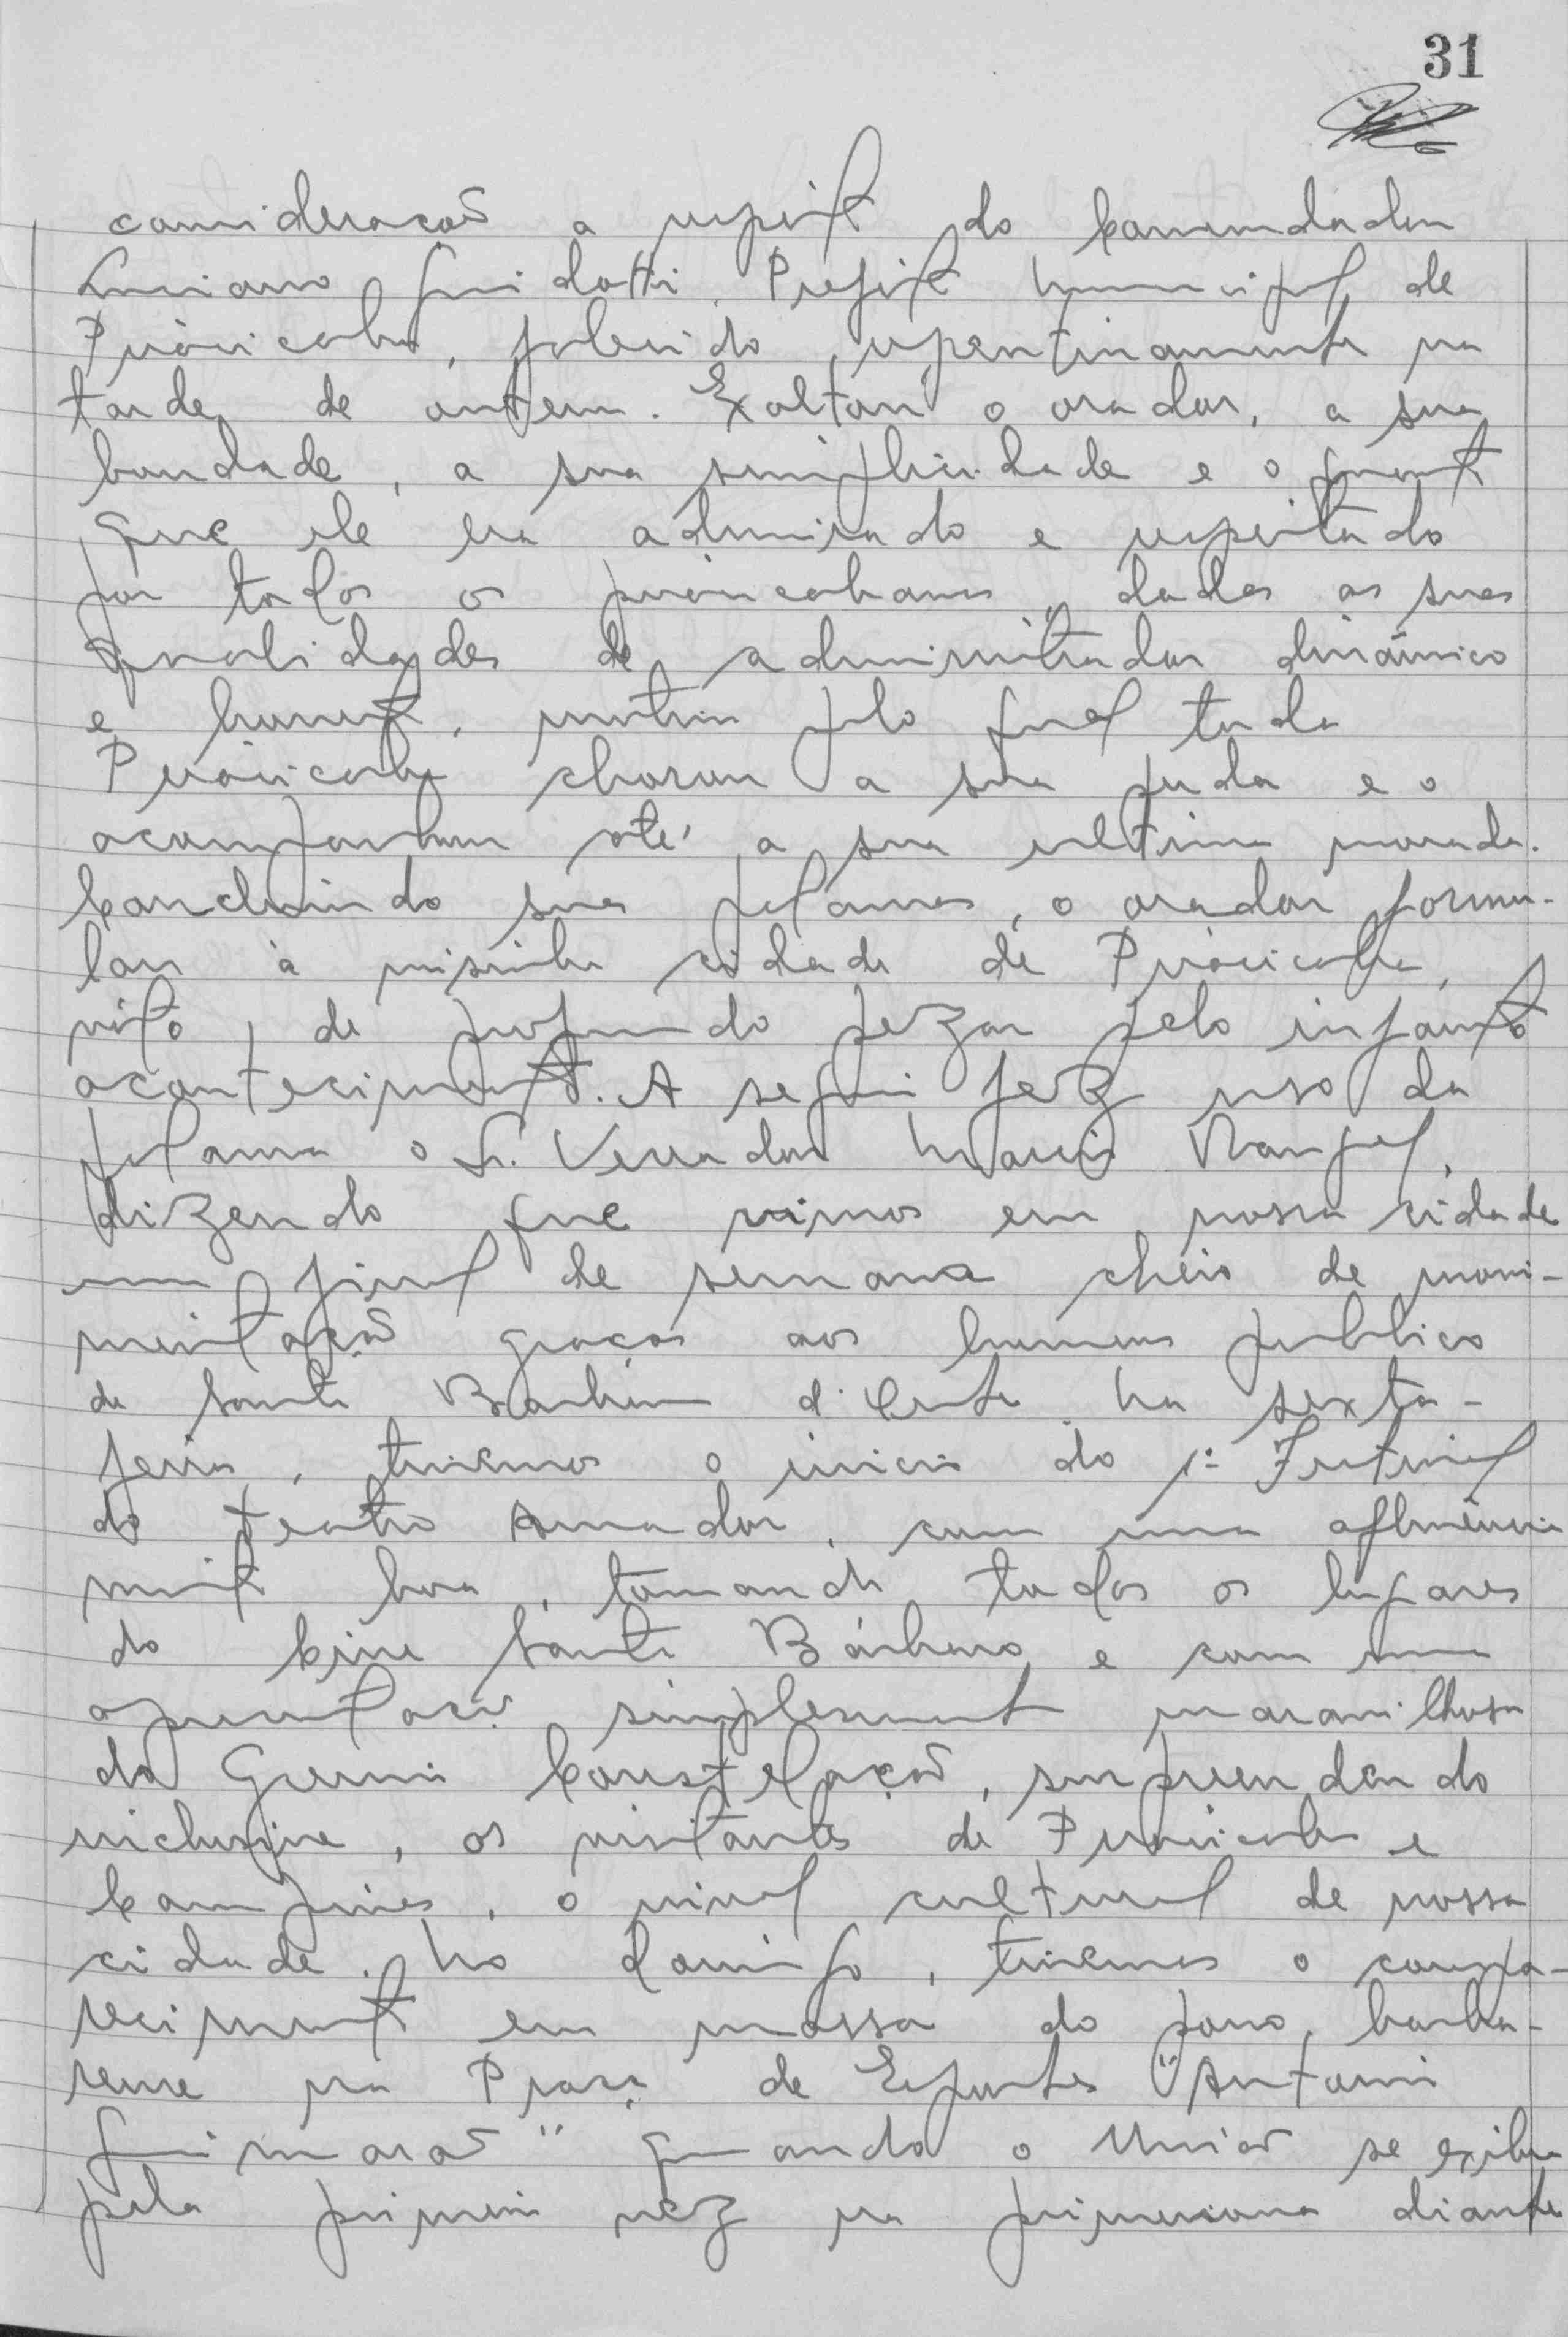 31
consideração a respeito do Comendador
Luciano Guidotti, Prefeito Municipal de
Piracicaba, falecido repentinamente na
tarde de ontem. Exaltou o orador, a sua
bondade, a sua simplicidade e o quanto
que ele era admirado e respeitado
por todos os piracicabanos, dadas as suas
qualidades de administrador dinâmico
e honesto, motivo pelo qual toda
Piracicaba chorou a sua perda e o
acompanhou até a sua ultima morada.
Concluindo suas palavras, o orador formu-
lou à visinha cidade de Piracicaba,
voto, de profundo pezar pelo infausto
acontecimento. A seguir fez uso da
palavra o Sr. Vereador Mario Rangel,
dizendo que vimos em nossa cidade
um final de semana cheio de movi-
mentação graças aos homens publico
de Santa Barbara d'Oeste. Na sexta-
feira, tivemos o inicio do 1º Festival
do Teatro Amador, com uma afluência
muito boa, tomando todos os lugares
do Cine Santa Bárbara e com uma
apresentação simplesmente maravilhosa
do Gremio Constelação, surpreendendo
inclusive, os visitantes de Piracicaba e
Campinas, o nivel cultural de nossa
cidade. No domingo, tivemos o compa-
recimento em massa do povo barba-
rense na Praça de Esportes "Antonio
Guimarães" quando o União se exibiu
pela primeira vez na primeirona diante